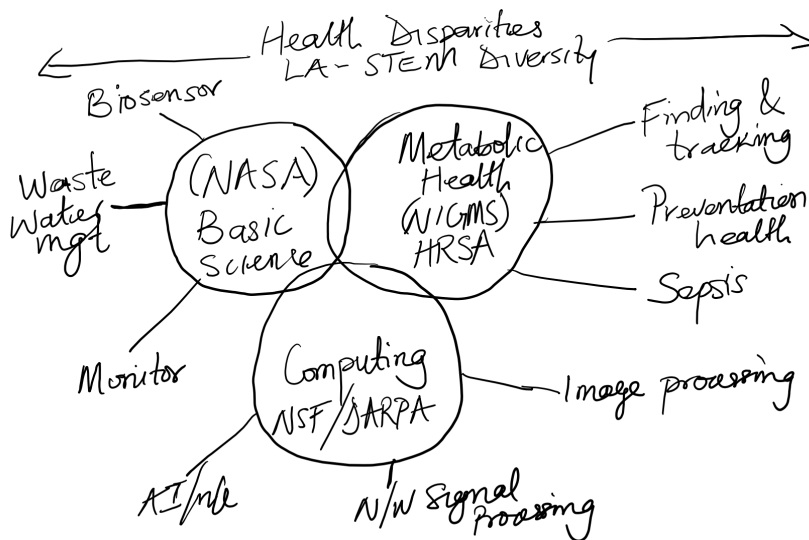 Health Disparities
LA-STEM Diversity
Biosensor
Waste
Water
mgt
Monitor
(NASA)
Basic
Science
Metabolic
Health
(NIGMS)
HRSA
Finding &
tracking
Preventation
health
Sepsis
Computing
NSF/DARPA
Image processing
AI/ML
N/W Signal
Processing